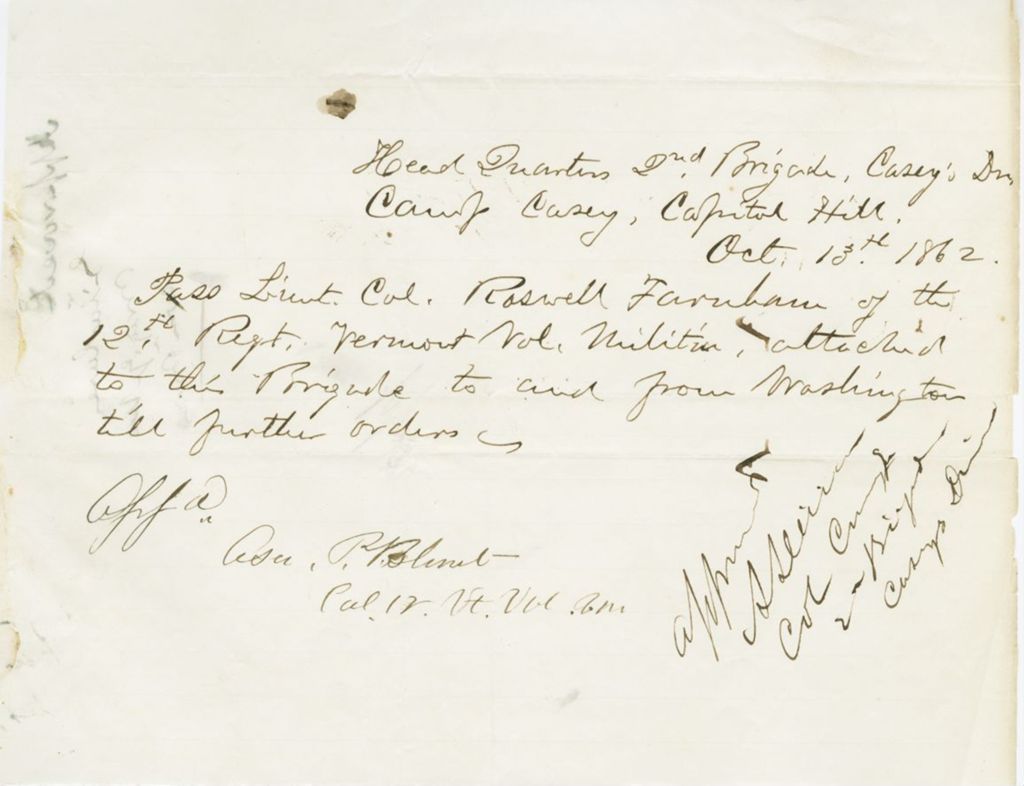 Head Quarters 2nd. Brigade, Casey's Div
Camp Casey, Capitol Hill.
Oct. 13th 1862.
Pass Lieut. Col. Roswell Farnham of the
12th. Regt. Vermont Vol. Militia, attached
to this Brigade to and from Washington
till further orders
Appd
Asa P. Blunt
Col. 12. Vt. Vol.
Approved
Col Comdg
2nd Brigade
Caseys Div